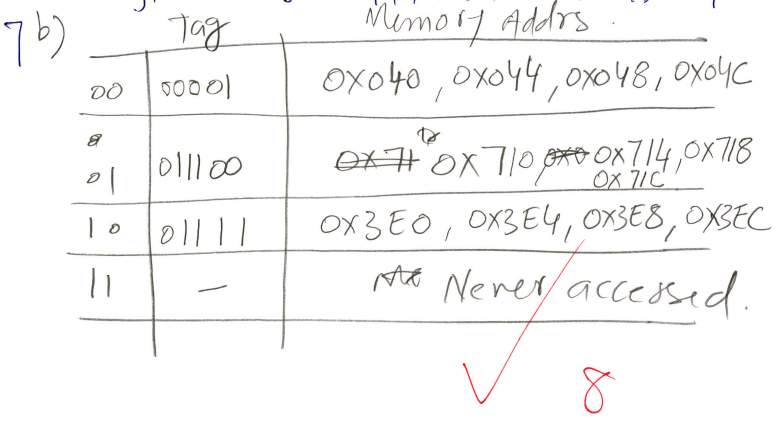 7b) Tag Memory Addrs.
00 00001 0x040, 0x044, 0x048, 0x04C
01 011100 0x710 0x714, 0x718
0x71C
10 01111 0x3E0, 0x3E4, 0x3E8, 0x3EC
11 — Never accessed.
8